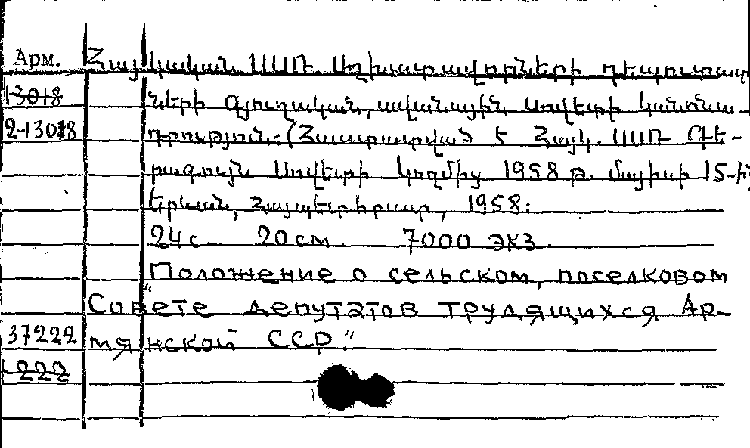 Арм. Հայկական ՍՍՌ Աշխատավորների դեպուտատ
13018 ների գյուղական, ավանային սովետի կանոնա-
2-13018 դրություն. (Հաստատված է Հայկ. ՍՍՌ Գե-
րագույն Սովետի կողմից 1958 թ. մայիսի 15-ին
Երևան, Հայպետհրատ, 1958:
24 с 20 см. 7000 экз.
"Положение о сельском, поселковом
Совете депутатов трудящихся Ар-
37222 мянской ССР."
222